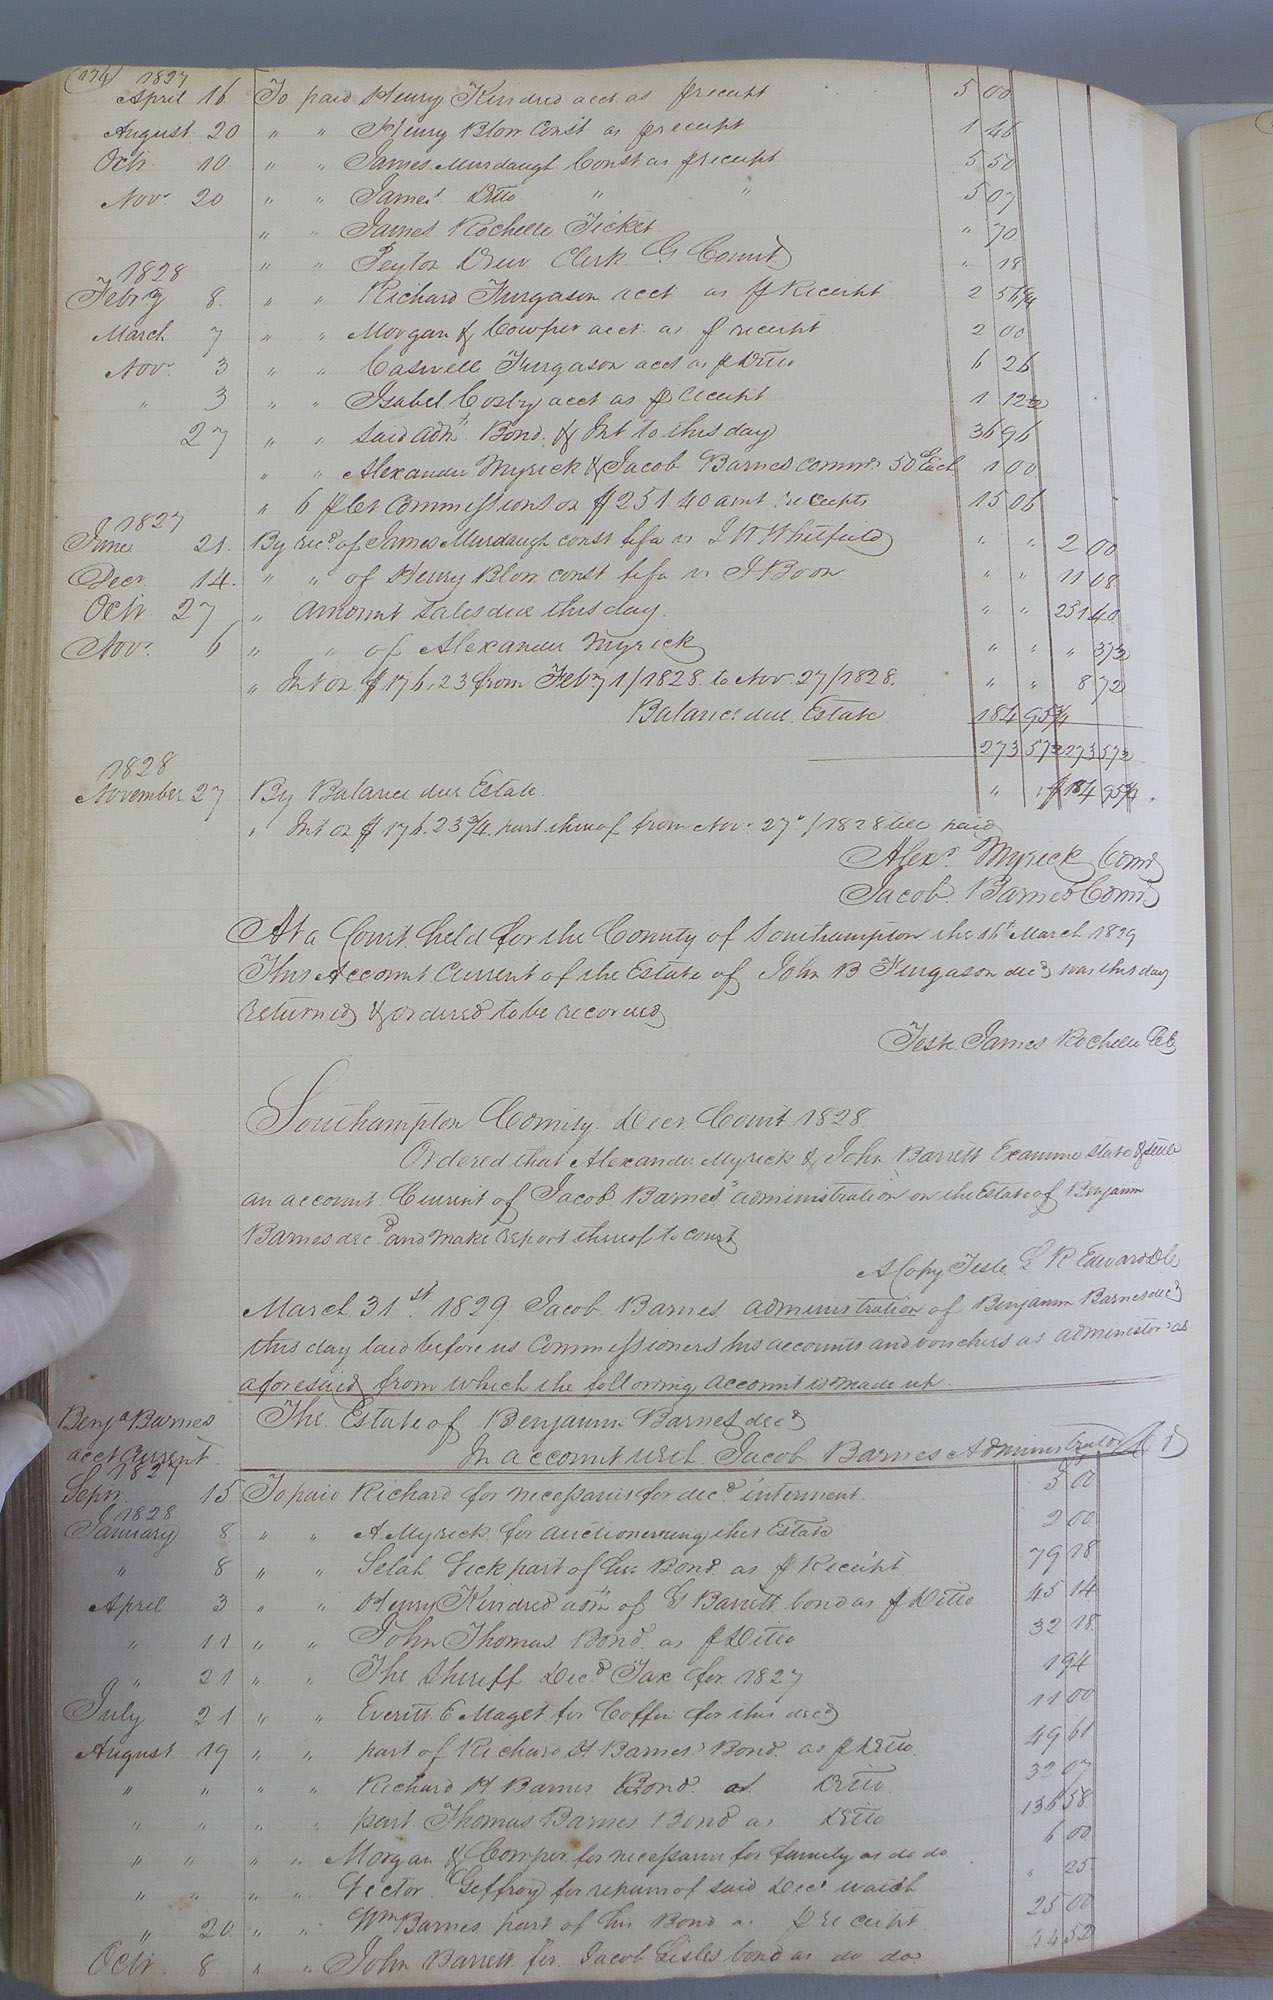 174 1827
April 16 To paid Henry Kindred acct as p receipt 5 00
August 20 " " Henry Blow Const as p receipt 1 46
Octr 10 " " James Murdaugh Const as p receipt 5 50
Novr 20 " " James Ditto " " 5 07
" " James Rochelle Ticket " 70
" " Peyton Drew Clerk G Court " 18
1828
Febry 8. " " Richard Furgason acct as p Receipt 2
March 7 " " Morgan & Cowper acct as p receipt 2 00
Novr 3 " " Caswell Furgason acct as p Ditto 6 26
" 3 " " Isabel Cosby acct as p receipt 1 12½
27 " " Said Admr Bond & Int to this day 36 96
" " Alexander Myrick & Jacob Barnes commrs 50 c Each 1 00
" 6 p Ct Commissions on $251.40 amt receipts 15 06
1827
June 21. By recd of James Murdaugh const fifa vs J W Whitfield " " 2 00
Decr 14. " " of Henry Blow const fifa vs J Boon " " 11 08
Octr 27 " Amount Sales due this day " " 251 40
Novr 6 " " of Alexander Myrick " " " 37½
" Int on $176.23 from Feby 1/1828 to Nov. 27/1828. " " 8 72
Balance due Estate 184 95¾
273 57½ 273 57½
1828
November 27 By Balance due Estate. " " $184 95¾
" Int on $176.23¾ part thereof from Novr 27th/1828 till paid
Alexr Myrick Comr
Jacob Barnes Comr
At a Court held for the County of Southampton the 16th March 1829
This Account Current of the Estate of John B Furgason decd was this day
returned & ordered to be recorded
Teste James Rochelle Clk
Southampton County Decr Court 1828
Ordered that Alexander Myrick & John Barrett Examine state & settle
an account Current of Jacob Barnes' administration on the Estate of Benjamin
Barnes decd and make report thereof to court
A Copy Teste L R Edwards Clk
March 31st 1829 Jacob Barnes administration of Benjamin Barnes decd
this day laid before us Commissioners his accounts and vouchers as administor as
aforesaid from which the following account is made up.
Benja Barnes The Estate of Benjamin Barnes decd
acct Current In account with Jacob Barnes Administrator Dr
1827
Sepr 15 To paid Richard for necessaries for decd interment. 5 00
1828
January 8 " " A. Myrick for auctioneering this Estate 2 00
" 8 " " Selah Vick part of her Bond as p Receipt 79 18
April 3 " " Henry Kindred admr of G Barrett bond as p Ditto 45 14
" 11 " " John Thomas Bond as p Ditto 32 18
" 21 " " The Sheriff Decd Tax for 1827 1 94
July 21 " " Everitt E Maget for Coffin for this decd 11 00
August 19 " " part of Richard H Barnes' Bond as p Ditto 49 61
" " " " Richard H Barnes Bond as Ditto 32 07
" " " " part Thomas Barnes Bond as Ditto 136 58
" " " " Morgan & Cowper for necessaries for family as do do 6 00
" " " " Victor Geffroy for repairs of said Decd watch " 25
" 20 " " Wm Barnes part of his Bond as p receipt 25 00
Octr 8 " " John Barrett for Jacob Lisles bond as do do 44 52